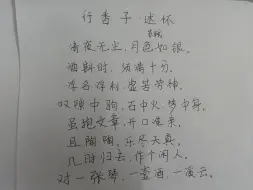 行香子·述怀
苏轼
清夜无尘，月色如银。
酒斟时，须满十分。
浮名浮利，虚苦劳神。
叹隙中驹，石中火，梦中身。
虽抱文章，开口谁亲。
且陶陶，乐尽天真。
几时归去，作个闲人。
对一张琴，一壶酒，一溪云。